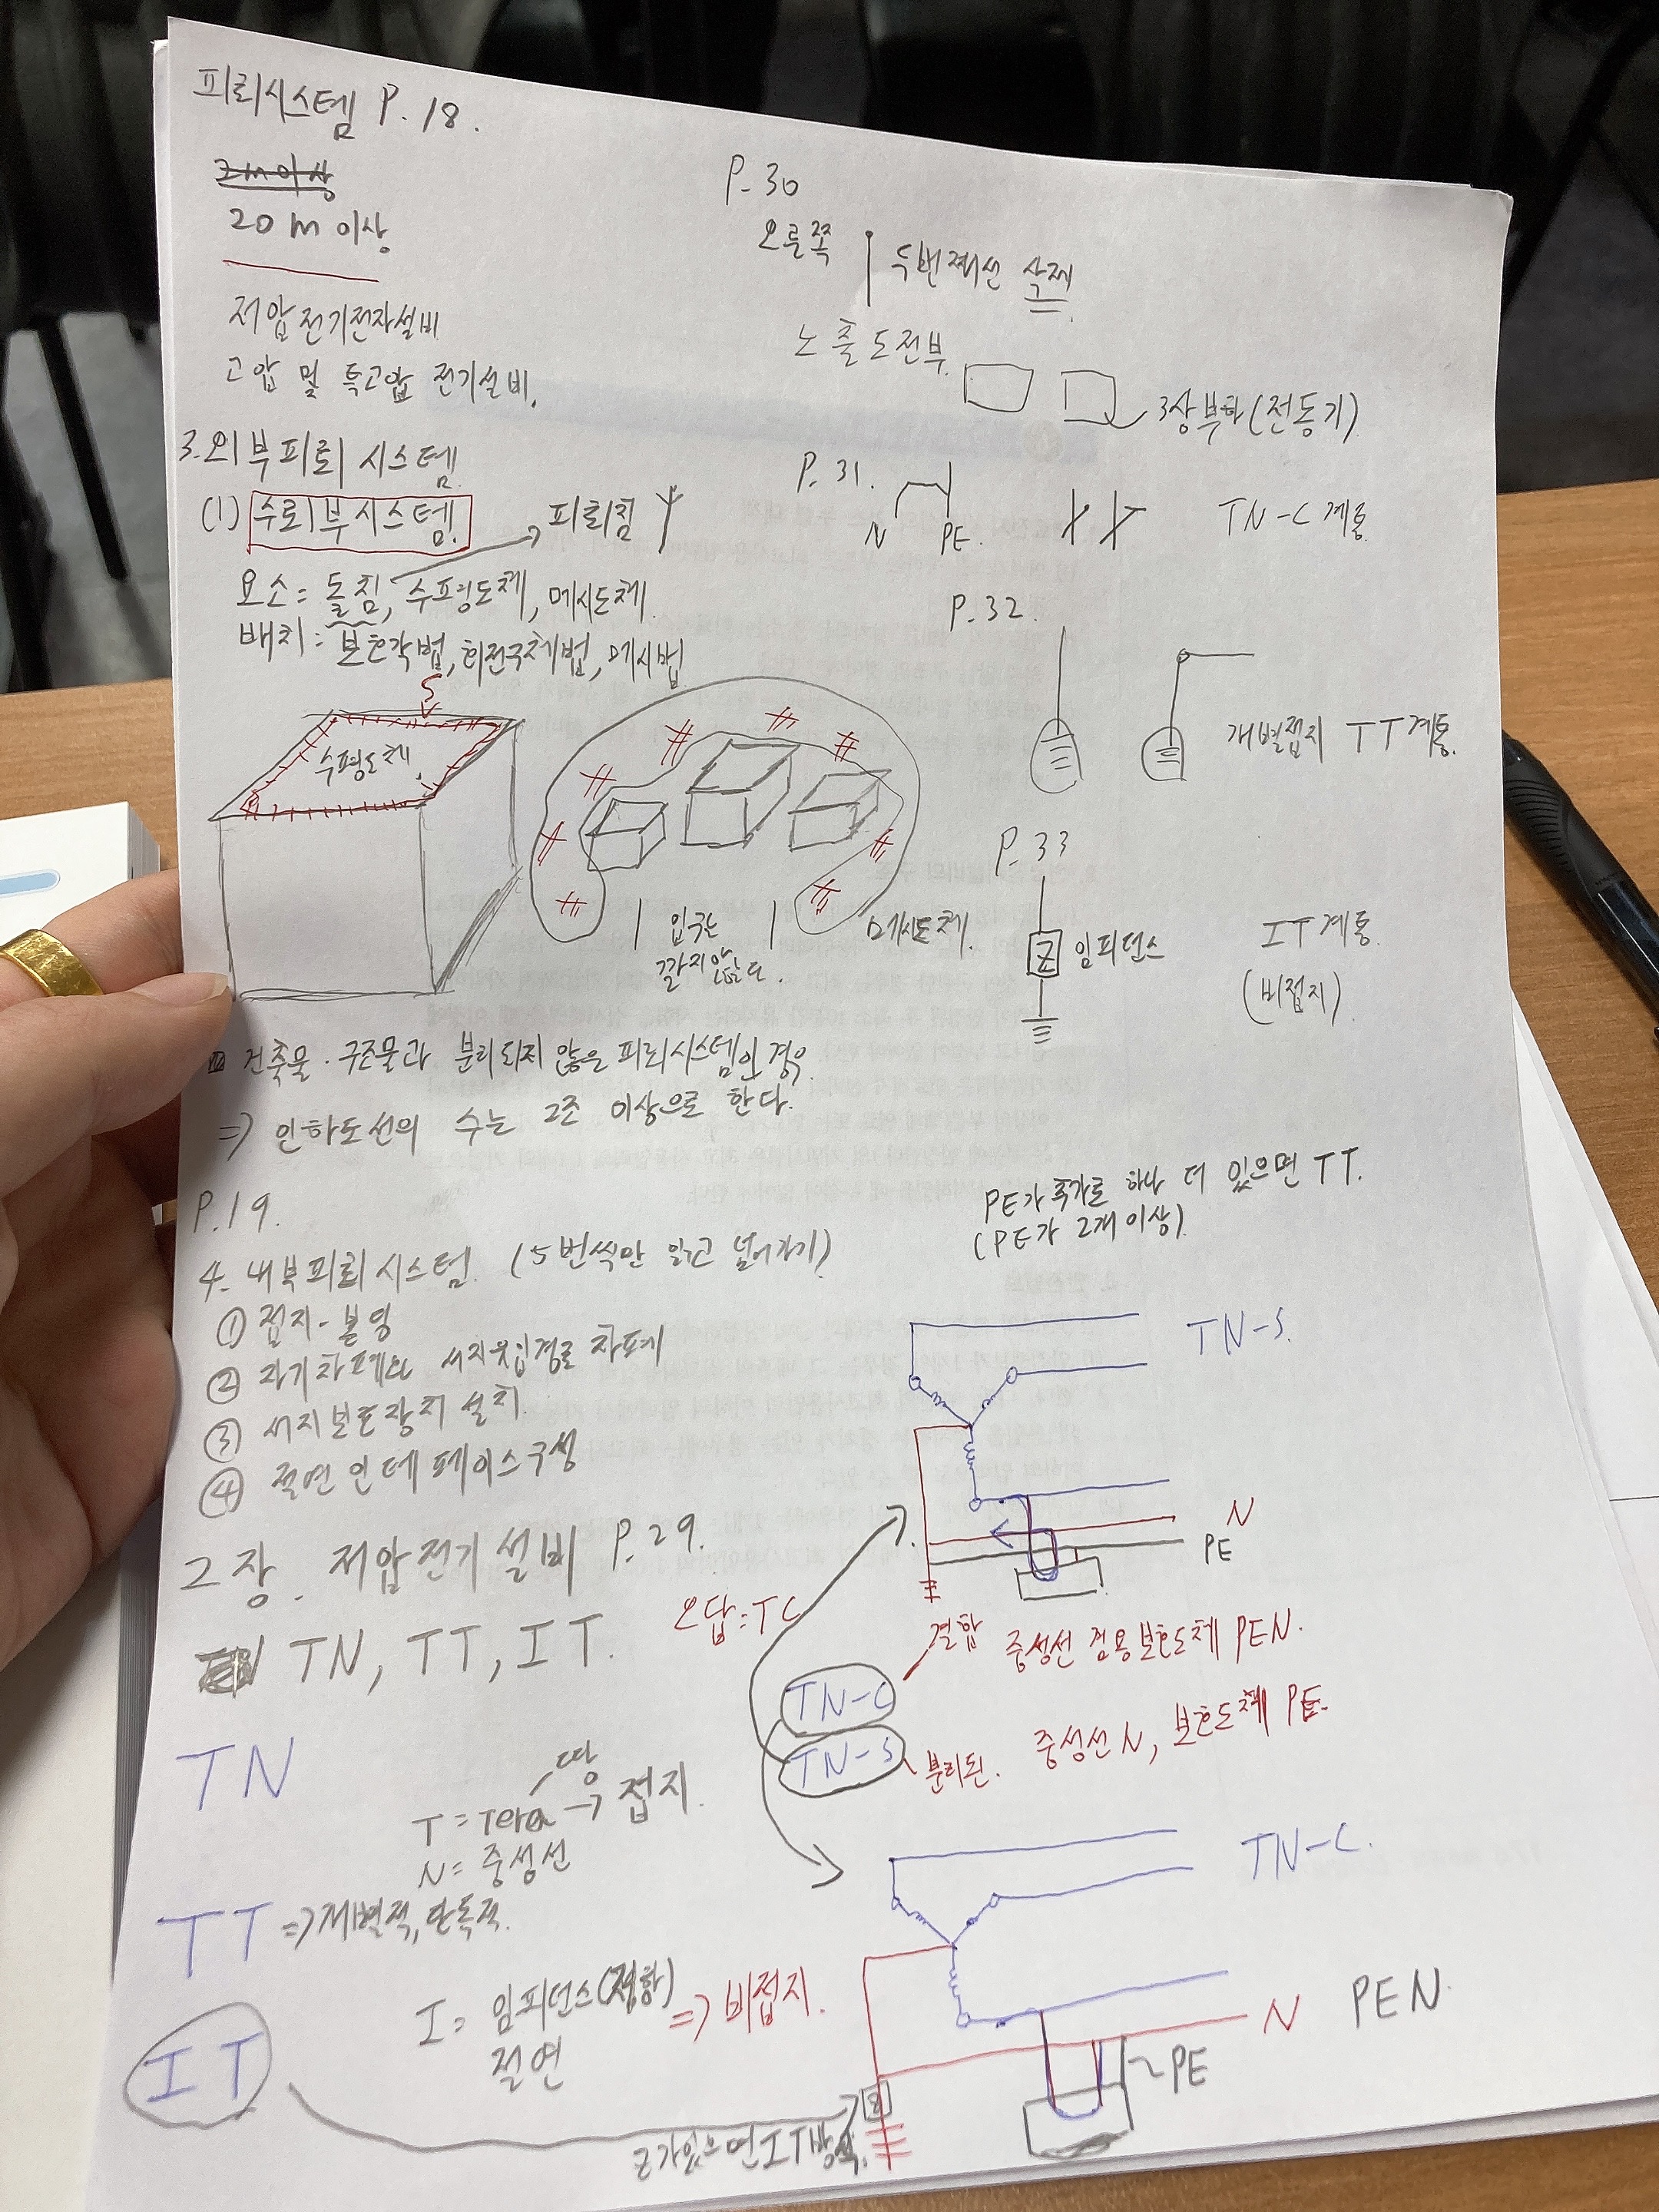 피뢰시스템 P.18.
2m이상
20m이상
저압전기전자설비
고압 및 특고압 전기설비.
3.외부피뢰시스템
(1) 수뢰부시스템.
피뢰침
요소 = 돌침, 수평도체, 메시도체
배치 : 보호각법, 회전구체법, 메시법
수평도체.
입구는
깔지않는다.
메시도체.
건축물·구조물과 분리되지 않은 피뢰시스템인 경우
=> 인하도선의 수는 2조 이상으로 한다.
P.19.
4. 내부피뢰시스템. (5번씩만 읽고 넘어가기)
① 접지-본딩
② 자기차폐와 서지유입경로 차폐
③ 서지보호장치 설치.
④ 절연인테페이스구성
2장. 저압전기설비 P.29.
TN, TT, IT.
오답:TC
TN
땅
T = Tera → 접지.
N = 중성선
TT => 개별적, 단독적.
I = 임피던스(저항)
절연
=> 비접지.
IT
Z가있으면 IT방식.
P.30
오른쪽
두번째선 삭제
노출도전부.
3상부하(전동기)
P.31.
N
PE.
TN-C계통.
P.32.
개별접지 TT계통.
P.33
Z
임피던스
IT계통.
(비접지)
PE가 추가로 하나 더 있으면 TT.
(PE가 2개이상)
TN-S.
N
PE
결합
중성선 겸용보호도체 PEN.
TN-C
TN-S
분리된.
중성선N, 보호도체 PE.
TN-C.
N
PEN.
PE
Z